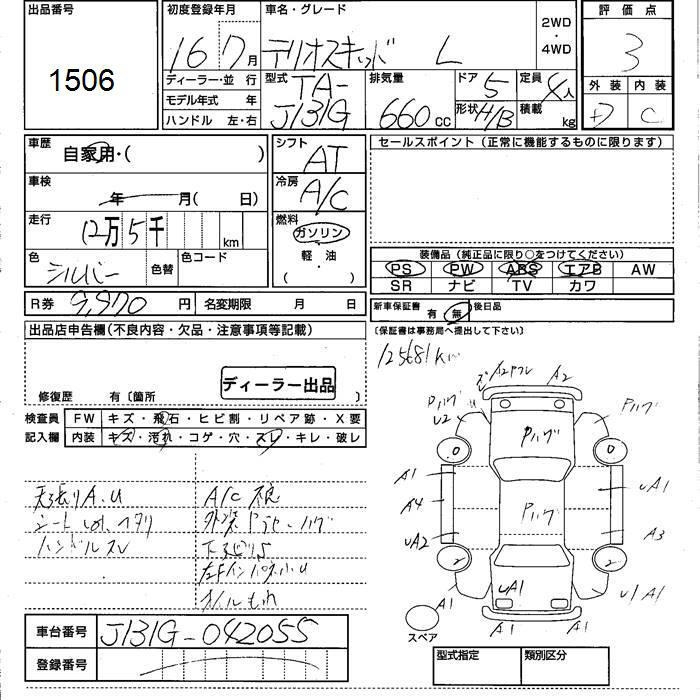 出品番号
1506
初度登録年月
16 7月
車名・グレード
テリオスキッド L
2WD
・
4WD
評価点
3
外装 内装
D C
ディーラー・並 行
モデル年式 年
ハンドル 左・右
型式 TA-
J131G
排気量
660cc
ドア 5
形状 H/B
定員 4人
積載 kg
車歴
自家用・( )
車検
年 月( 日)
走行
12万5千 km
色
シルバー
色替
色コード
シフト
AT
冷房
A/C
燃料
ガソリン
軽・油
( )
セールスポイント(正常に機能するものに限ります)
装備品(純正品に限り○をつけてください)
PS PW ABS エアB AW
SR ナビ TV カワ
R券 9,970円 名変期限 月 日
新車保証書 有 無 後日品
(保証書は事務局へ提出して下さい)
出品店申告欄(不良内容・欠品・注意事項等記載)
ディーラー出品
修復歴 有〔箇所 〕
125681Km
検査員
記入欄
FW キズ・飛石・ヒビ割・リペア跡・X要
内装 キズ・汚れ・コゲ・穴・スレ・キレ・破レ
天張りA.U
A/C不良
ハンドルスレ
下廻りS
オイルもれ
A2 A2
Pハゲ Pハゲ
U2
Pハゲ
0 0
A1
A4
UA2
Pハゲ
UA1
A3
2 2
UA1
A1
U1A1
A1 A1
スペア
車台番号 J131G-042055
登録番号
型式指定 類別区分